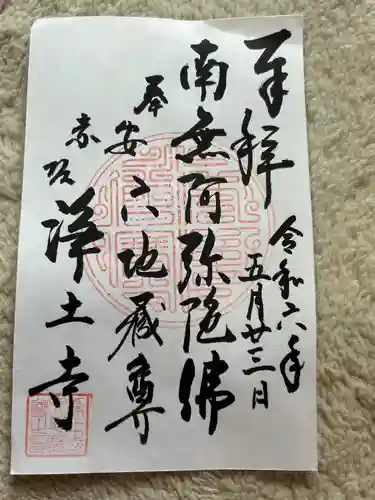 奉拝
令和六年
五月廿三日
南無阿弥陀佛
奉安六地蔵尊
赤坂
浄土寺